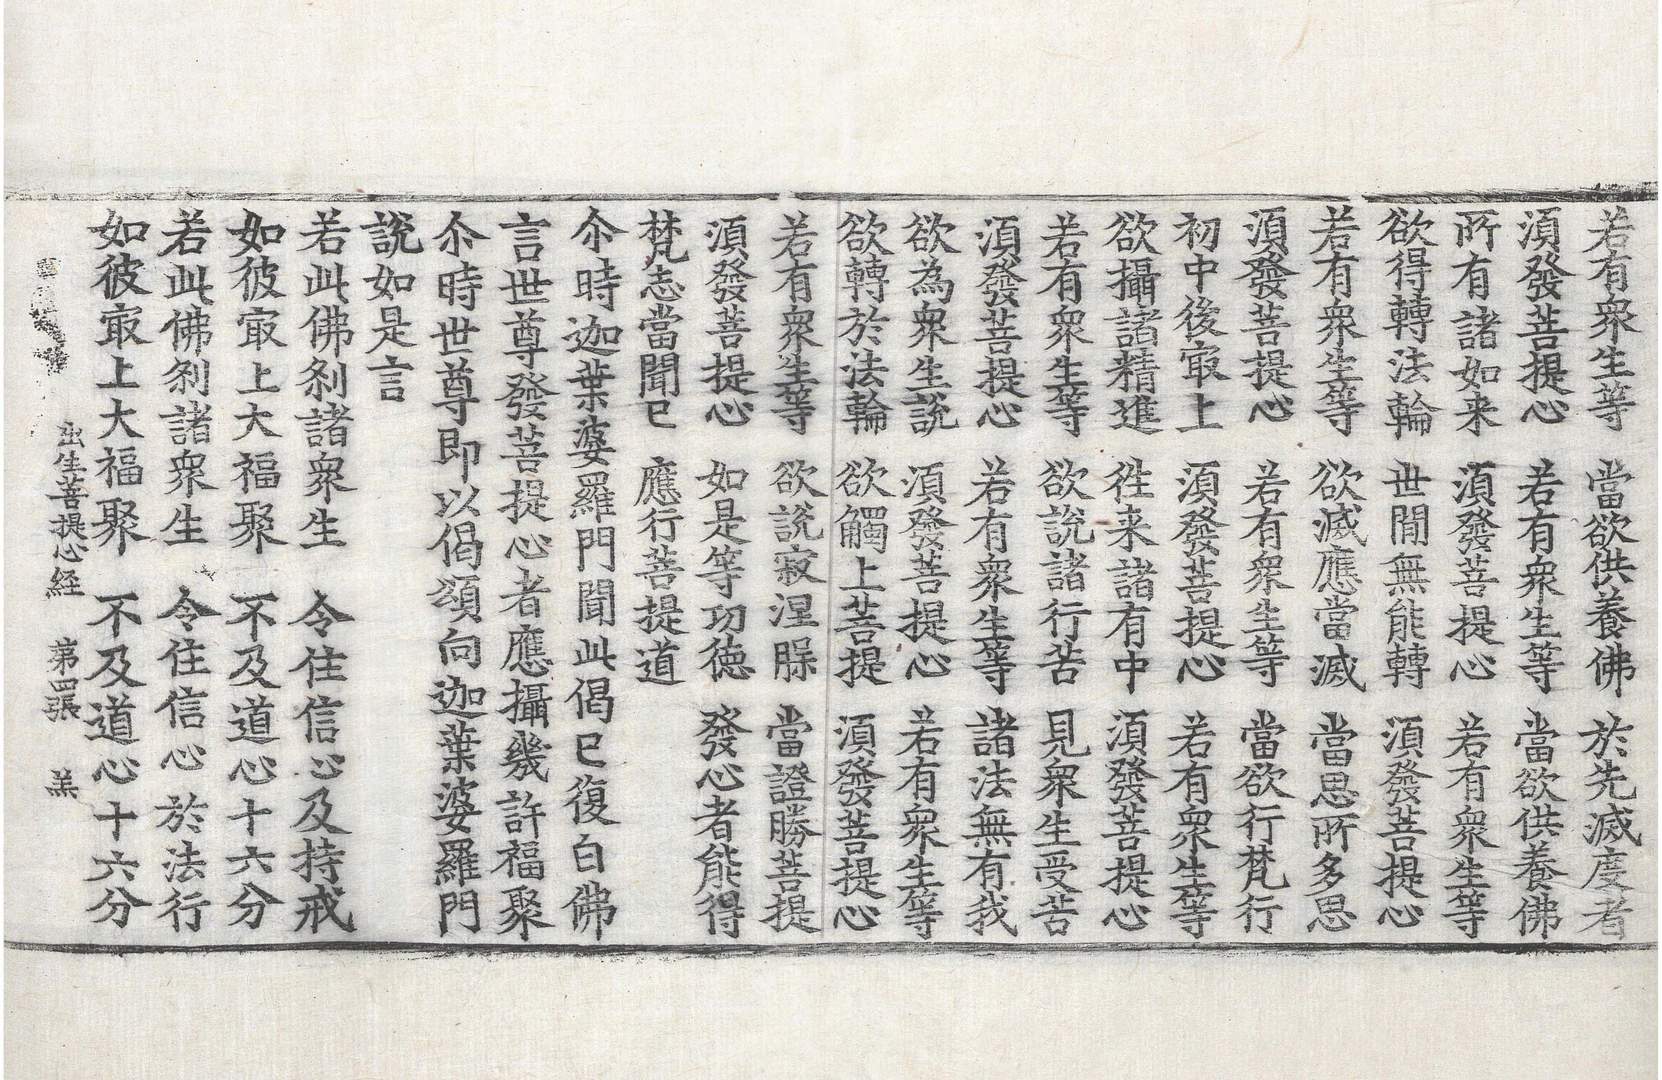 若有衆生等　當欲供養佛　於先滅度者
須發菩提心　若有衆生等　當欲供養佛
所有諸如来　須發菩提心　若有衆生等
欲得轉法輪　世間無能轉　須發菩提心
若有衆生等　欲滅應當滅　當思所多思
須發菩提心　若有衆生等　當欲行梵行
初中後㝡上　須發菩提心　若有衆生等
欲攝諸精進　徃来諸有中　須發菩提心
若有衆生等　欲說諸行苦　見衆生受苦
須發菩提心　若有衆生等　諸法無有我
欲為衆生說　須發菩提心　若有衆生等
欲轉於法輪　欲觸上菩提　須發菩提心
若有衆生等　欲說寂涅槃　當證勝菩提
須發菩提心　如是等功徳　發心者能得
梵志當聞已　應行菩提道
尒時迦葉婆羅門聞此偈已復白佛
言世尊發菩提心者應攝幾許福聚
尒時世尊即以偈頌向迦葉婆羅門
說如是言
若此佛刹諸衆生　令住信心及持戒
如彼㝡上大福聚　不及道心十六分
若此佛刹諸衆生　令住信心於法行
如彼㝡上大福聚　不及道心十六分
出生菩提心経　第四張　羔